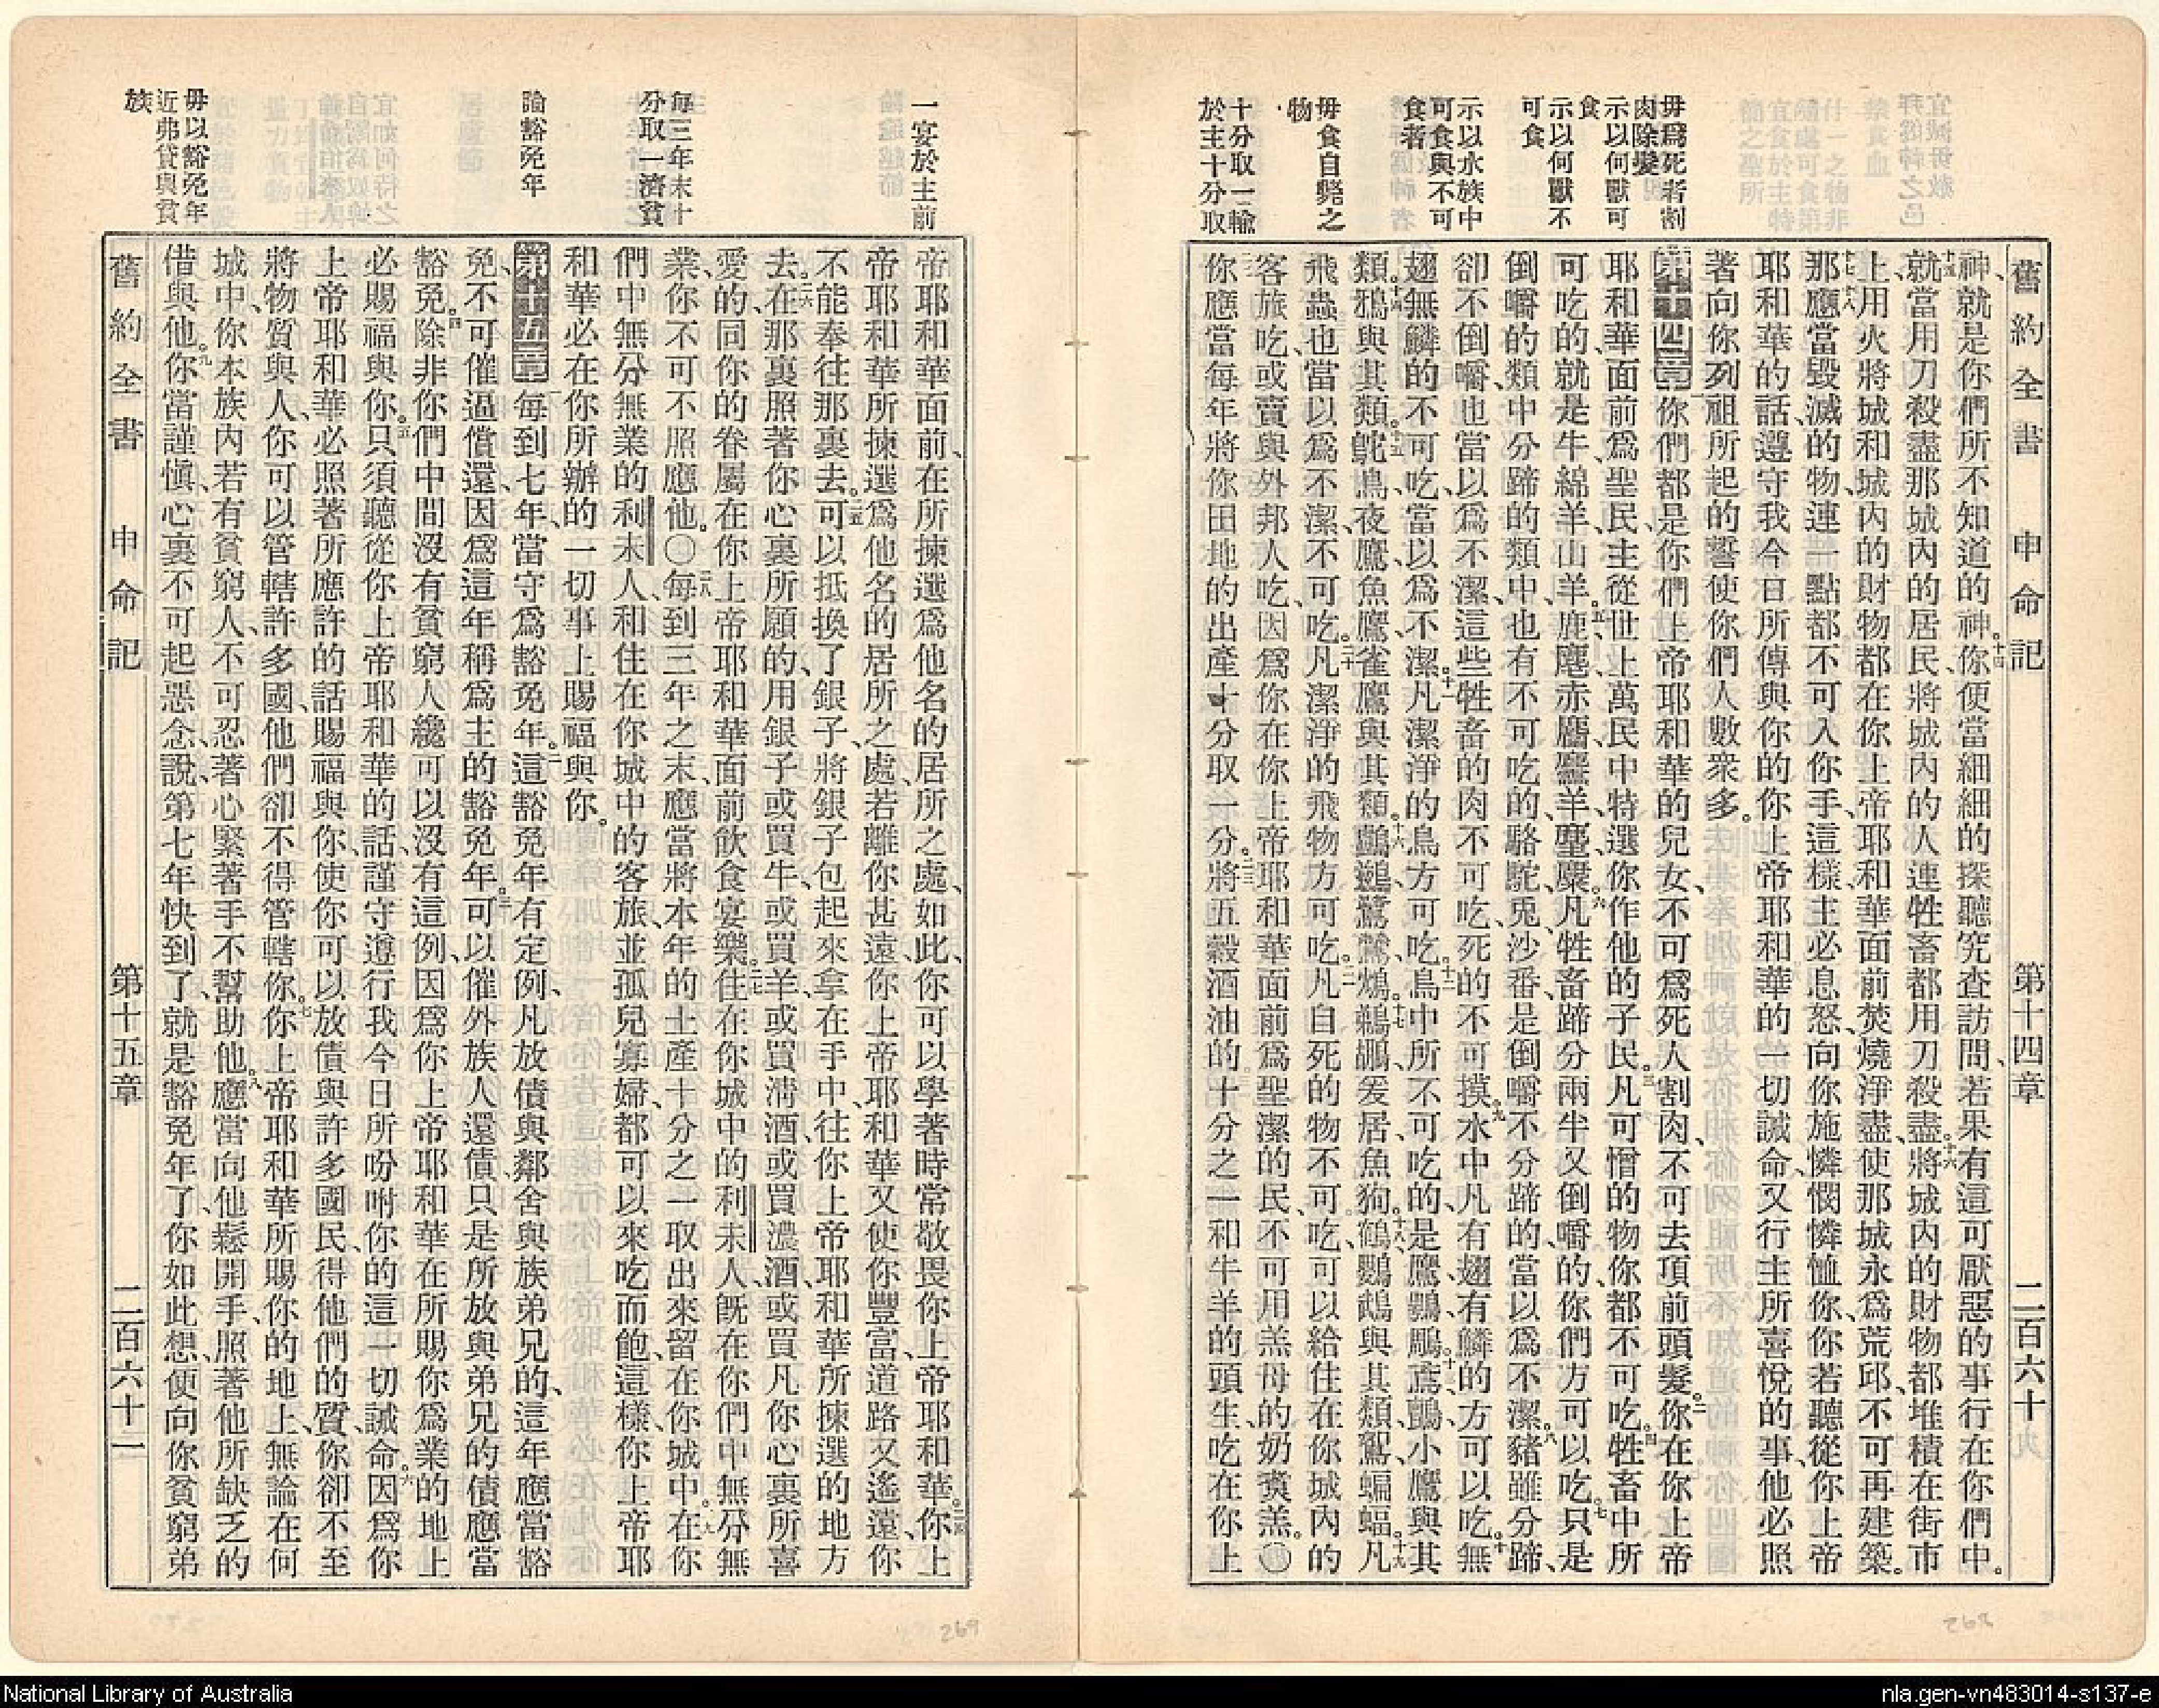 宜誡毋敎
毋為死者割
肉除髮
示以何獸可
食
示以何獸不
可食
示以水族中
可食與不可
食者
毋食自斃之
物
十分取一輸
於主十分取
舊約全書 申命記 第十四章 二百六十
神、就是你們所不知道的神。十四你便當細細的探聽究查訪問、若果有這可厭惡的事行在你們中。
十五就當用刀殺盡那城內的居民、將城內的人連牲畜都用刀殺盡。十六將城內的財物都堆積在街市
上、用火將城和城內的財物都在你上帝耶和華面前焚燒淨盡、使那城永為荒邱、不可再建築。
十七那應當毀滅的物、連一點都不可入你手、這樣、主必息怒向你施憐憫憐恤你、十八你若聽從你上帝
耶和華的話、遵守我今日所傳與你的你上帝耶和華的一切誡命、又行主所喜悅的事、他必照
著向你列祖所起的誓、使你們人數衆多。
第十四章 一你們都是你們上帝耶和華的兒女、不可為死人割肉、不可去項前頭髮。二你在你上帝
耶和華面前為聖民、主從世上萬民中特選你作他的子民。三凡可憎的物你都不可吃。四牲畜中所
可吃的、就是牛、綿羊、山羊。五鹿、麞、赤麕、麢羊、麈、麋。六凡牲畜蹄分兩半又倒嚼的、你們方可以吃。七只是
倒嚼的類中、分蹄的類中、也有不可吃的、駱駝、兎、沙番、是倒嚼不分蹄的、當以為不潔。八豬雖分蹄、
卻不倒嚼、也當以為不潔、這些牲畜的肉不可吃、死的不可摸。九水中凡有翅有鱗的、方可以吃。十無
翅無鱗的、不可吃、當以為不潔。十一凡潔淨的鳥方可吃。十二鳥中所不可吃的、是鷹、鶚、鵰。十三鳶、鸇、小鷹與其
類。十四鴉與其類。十五鴕鳥、夜鷹、魚鷹、雀鷹與其類。十六鸕鷀、鷺鷥、鴆。十七鵜鶘、爰居、魚狗。十八鶴、鸚鵡與其類、鴽、蝙蝠。十九凡
飛蟲也當以為不潔、不可吃。二十凡潔淨的飛物方可吃。二一凡自死的物不可吃、可以給住在你城內的
客旅吃、或賣與外邦人吃、因為你在你上帝耶和華面前為聖潔的民、不可用羔母的奶煑羔。〇
二二你應當每年將你田地的出產十分取一分。二三將五穀酒油的十分之一、和牛羊的頭生、吃在你上
一宴於主前
每三年末十
分取一濟貧
論豁免年
毋以豁免年
近弗貸與貧
族
帝耶和華面前、在所揀選為他名的居所之處、如此、你可以學著時常敬畏你上帝耶和華。二四你上
帝耶和華所揀選為他名的居所之處、若離你甚遠、你上帝耶和華又使你豐富、道路又遙遠、你
不能奉往那裏去。二五可以抵換了銀子、將銀子包起來拿在手中、往你上帝耶和華所揀選的地方
去。二六在那裏照著你心裏所願的、用銀子或買牛、或買羊、或買清酒、或買濃酒、或買凡你心裏所喜
愛的、同你的眷屬在你上帝耶和華面前飲食宴樂。二七住在你城中的利未人、旣在你們中無分無
業、你不可不照應他。〇二八每到三年之末、應當將本年的土產十分之一取出來、留在你城中。二九在你
們中無分無業的利未人、和住在你城中的客旅、並孤兒寡婦、都可以來吃而飽、這樣、你上帝耶
和華必在你所辦的一切事上賜福與你。
第十五章 一每到七年、當守為豁免年。二這豁免年有定例、凡放債與鄰舍與族弟兄的、這年應當豁
免、不可催逼償還、因為這年稱為主的豁免年。三可以催外族人還債、只是所放與弟兄的債應當
豁免。四除非你們中間沒有貧窮人纔可以沒有這例、因為你上帝耶和華在所賜你為業的地上
必賜福與你。五只須聽從你上帝耶和華的話、謹守遵行我今日所吩咐你的這一切誡命。六因為你
上帝耶和華必照著所應許的話賜福與你、使你可以放債與許多國民、得他們的質、你卻不至
將物質與人、你可以管轄許多國、他們卻不得管轄你。七你上帝耶和華所賜你的地上、無論在何
城中、你本族內若有貧窮人、不可忍著心緊著手不幫助他。八應當向他鬆開手、照著他所缺乏的
借與他。九你當謹愼、心裏不可起惡念、說、第七年快到了、就是豁免年了、你如此想、便向你貧窮弟
舊約全書 申命記 第十五章 二百六十一
268
269
National Library of Australia
nla.gen-vn483014-s137-e